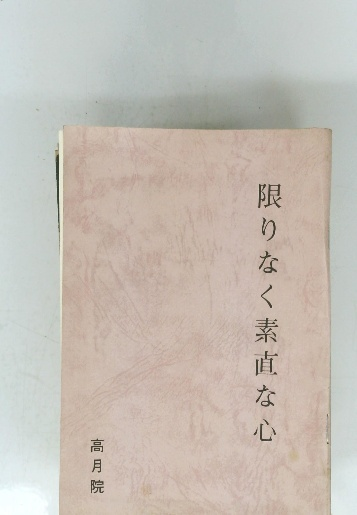 限りなく素直な心
高月院